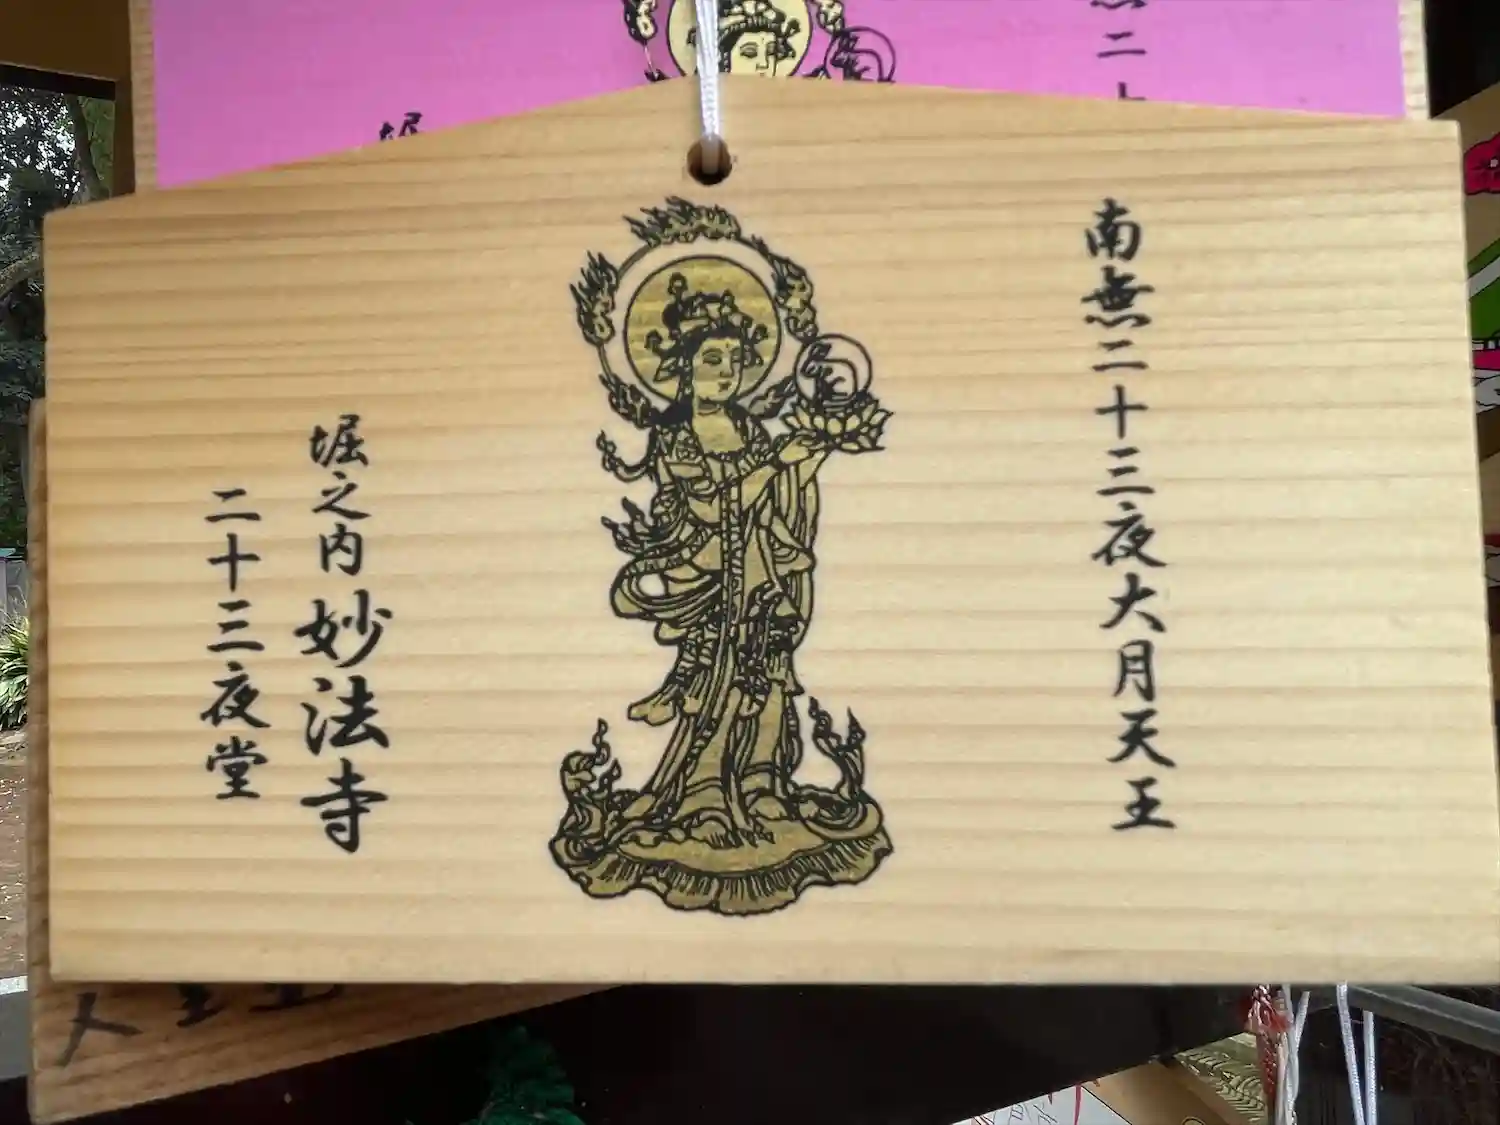 南無二十三夜大月天王
堀之内妙法寺
二十三夜堂